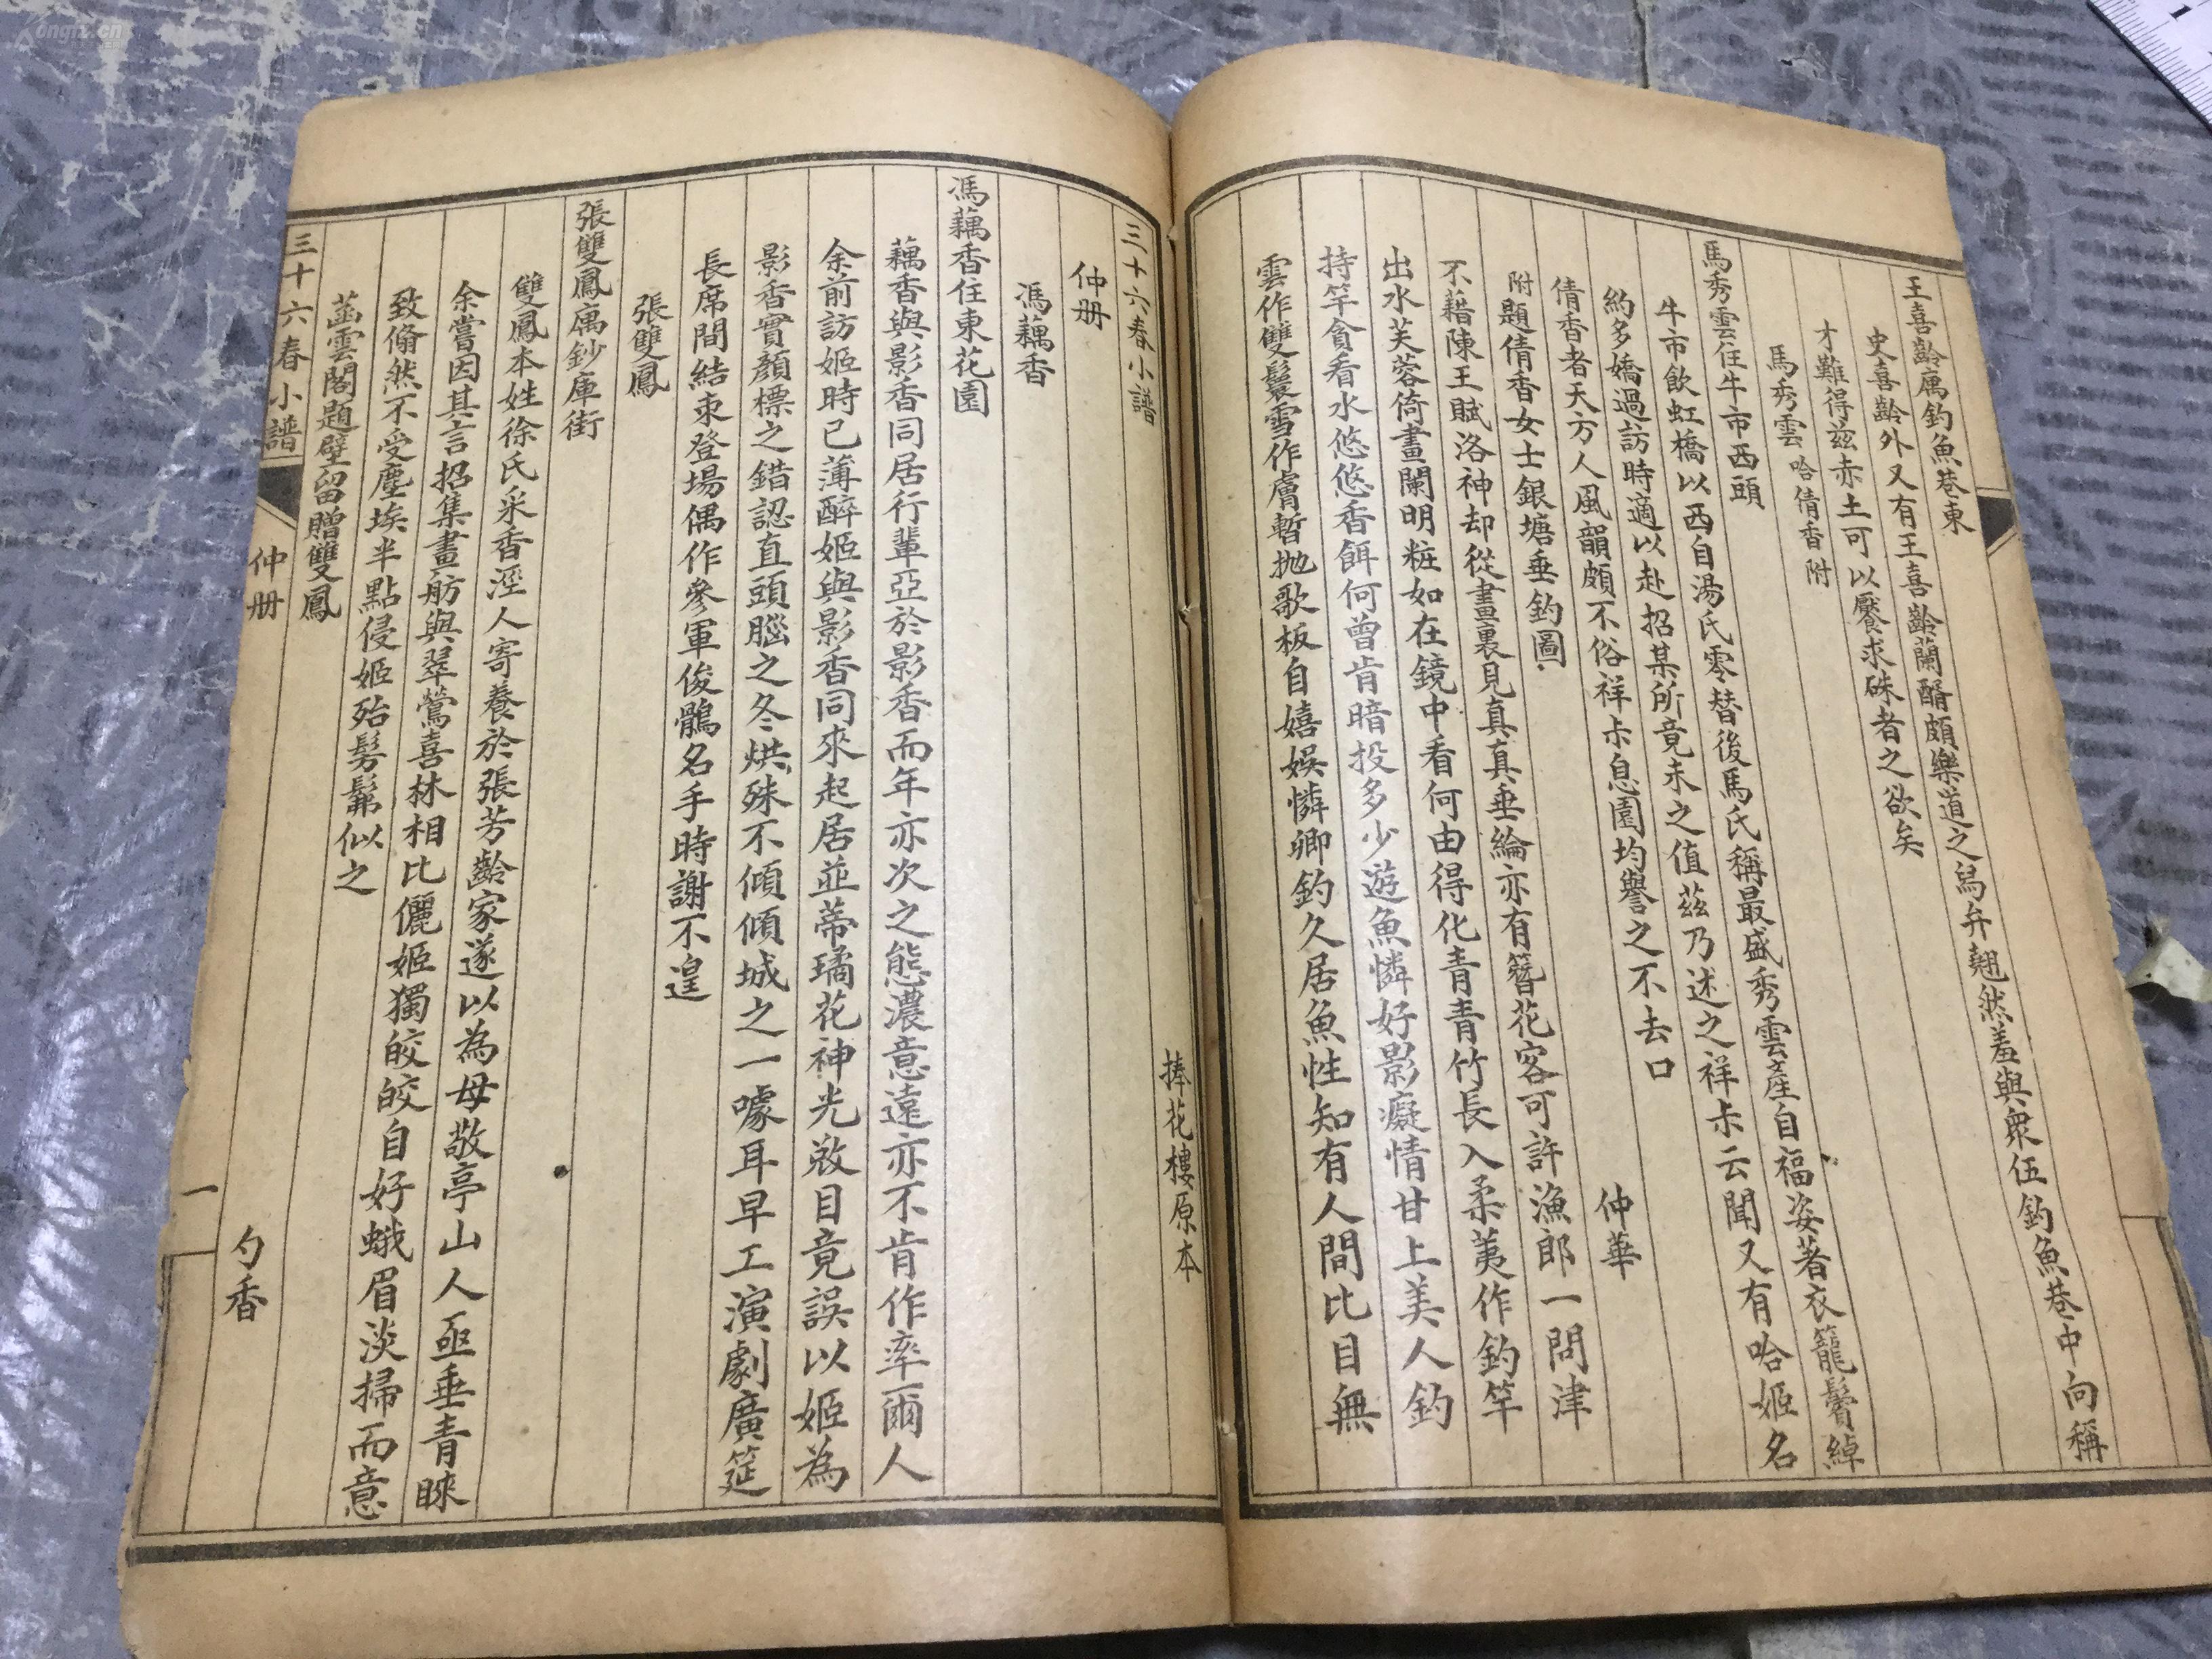 王喜齡寓釣魚巷東
史喜齡外又有王喜齡蘭醑頗樂道之舄弁翹然羞與衆伍釣魚巷中向稱
才難得茲赤土可以饜求硃者之欲矣
馬秀雲 哈倩香附
馬秀雲住牛市西頭
牛市飲虹橋以西自湯氏零替後馬氏稱最盛秀雲產自福姿著衣籠鬢綽
約多嬌過訪時適以赴招某所竟未之值茲乃述之祥尗云聞又有哈姬名
倩香者天方人風韻頗不俗祥尗息園均譽之不去口
附題倩香女士銀塘垂釣圖 仲華
不藉陳王賦洛神却從畫裏見真真垂綸亦有簪花客可許漁郎一問津
出水芙蓉倚畫闌明粧如在鏡中看何由得化青青竹長入柔荑作釣竿
持竿貪看水悠悠香餌何曾肯暗投多少遊魚憐好影癡情甘上美人釣
雲作雙鬟雪作膚暫拋歌板自嬉娛憐卿釣久居魚性知有人間比目無
三十六春小譜 捧花樓原本
仲册
馮藕香
馮藕香住東花園
藕香與影香同居行輩亞於影香而年亦次之態濃意遠亦不肯作率爾人
余前訪姬時已薄醉姬與影香同來起居並蒂璚花神光敚目竟誤以姬為
影香實顏標之錯認直頭腦之冬烘殊不傾傾城之一噱耳早工演劇廣筵
長席間結束登場偶作參軍俊鶻名手時謝不遑
張雙鳳
張雙鳳寓鈔庫街
雙鳳本姓徐氏采香涇人寄養於張芳齡家遂以為母敬亭山人亟垂青睞
余嘗因其言招集畫舫與翠鶯喜林相比儷姬獨皎皎自好蛾眉淡掃而意
致翛然不受塵埃半點侵姬殆髣髴似之
菡雲閣題壁留贈雙鳳 勺香
三十六春小譜 仲册 一